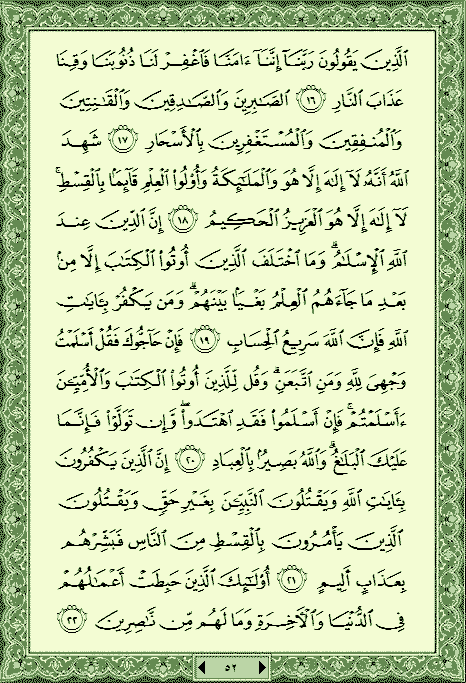 ٱلَّذِينَ يَقُولُونَ رَبَّنَآ إِنَّنَآ ءَامَنَّا فَٱغْفِرْ لَنَا ذُنُوبَنَا وَقِنَا
عَذَابَ ٱلنَّارِ ١٦ ٱلصَّٰبِرِينَ وَٱلصَّٰدِقِينَ وَٱلْقَٰنِتِينَ
وَٱلْمُنفِقِينَ وَٱلْمُسْتَغْفِرِينَ بِٱلْأَسْحَارِ ١٧ شَهِدَ
ٱللَّهُ أَنَّهُۥ لَآ إِلَٰهَ إِلَّا هُوَ وَٱلْمَلَٰٓئِكَةُ وَأُو۟لُوا۟ ٱلْعِلْمِ قَآئِمًۢا بِٱلْقِسْطِ ۚ
لَآ إِلَٰهَ إِلَّا هُوَ ٱلْعَزِيزُ ٱلْحَكِيمُ ١٨ إِنَّ ٱلدِّينَ عِندَ
ٱللَّهِ ٱلْإِسْلَٰمُ ۗ وَمَا ٱخْتَلَفَ ٱلَّذِينَ أُوتُوا۟ ٱلْكِتَٰبَ إِلَّا مِنۢ
بَعْدِ مَا جَآءَهُمُ ٱلْعِلْمُ بَغْيًۢا بَيْنَهُمْ ۗ وَمَن يَكْفُرْ بِـَٔايَٰتِ
ٱللَّهِ فَإِنَّ ٱللَّهَ سَرِيعُ ٱلْحِسَابِ ١٩ فَإِنْ حَآجُّوكَ فَقُلْ أَسْلَمْتُ
وَجْهِىَ لِلَّهِ وَمَنِ ٱتَّبَعَنِ ۗ وَقُل لِّلَّذِينَ أُوتُوا۟ ٱلْكِتَٰبَ وَٱلْأُمِّيِّـۧنَ
ءَأَسْلَمْتُمْ ۚ فَإِنْ أَسْلَمُوا۟ فَقَدِ ٱهْتَدَوا۟ ۖ وَّإِن تَوَلَّوْا۟ فَإِنَّمَا
عَلَيْكَ ٱلْبَلَٰغُ ۗ وَٱللَّهُ بَصِيرٌۢ بِٱلْعِبَادِ ٢٠ إِنَّ ٱلَّذِينَ يَكْفُرُونَ
بِـَٔايَٰتِ ٱللَّهِ وَيَقْتُلُونَ ٱلنَّبِيِّـۧنَ بِغَيْرِ حَقٍّ وَيَقْتُلُونَ
ٱلَّذِينَ يَأْمُرُونَ بِٱلْقِسْطِ مِنَ ٱلنَّاسِ فَبَشِّرْهُم
بِعَذَابٍ أَلِيمٍ ٢١ أُو۟لَٰٓئِكَ ٱلَّذِينَ حَبِطَتْ أَعْمَٰلُهُمْ
فِى ٱلدُّنْيَا وَٱلْـَٔاخِرَةِ وَمَا لَهُم مِّن نَّٰصِرِينَ ٢٢
٥٢